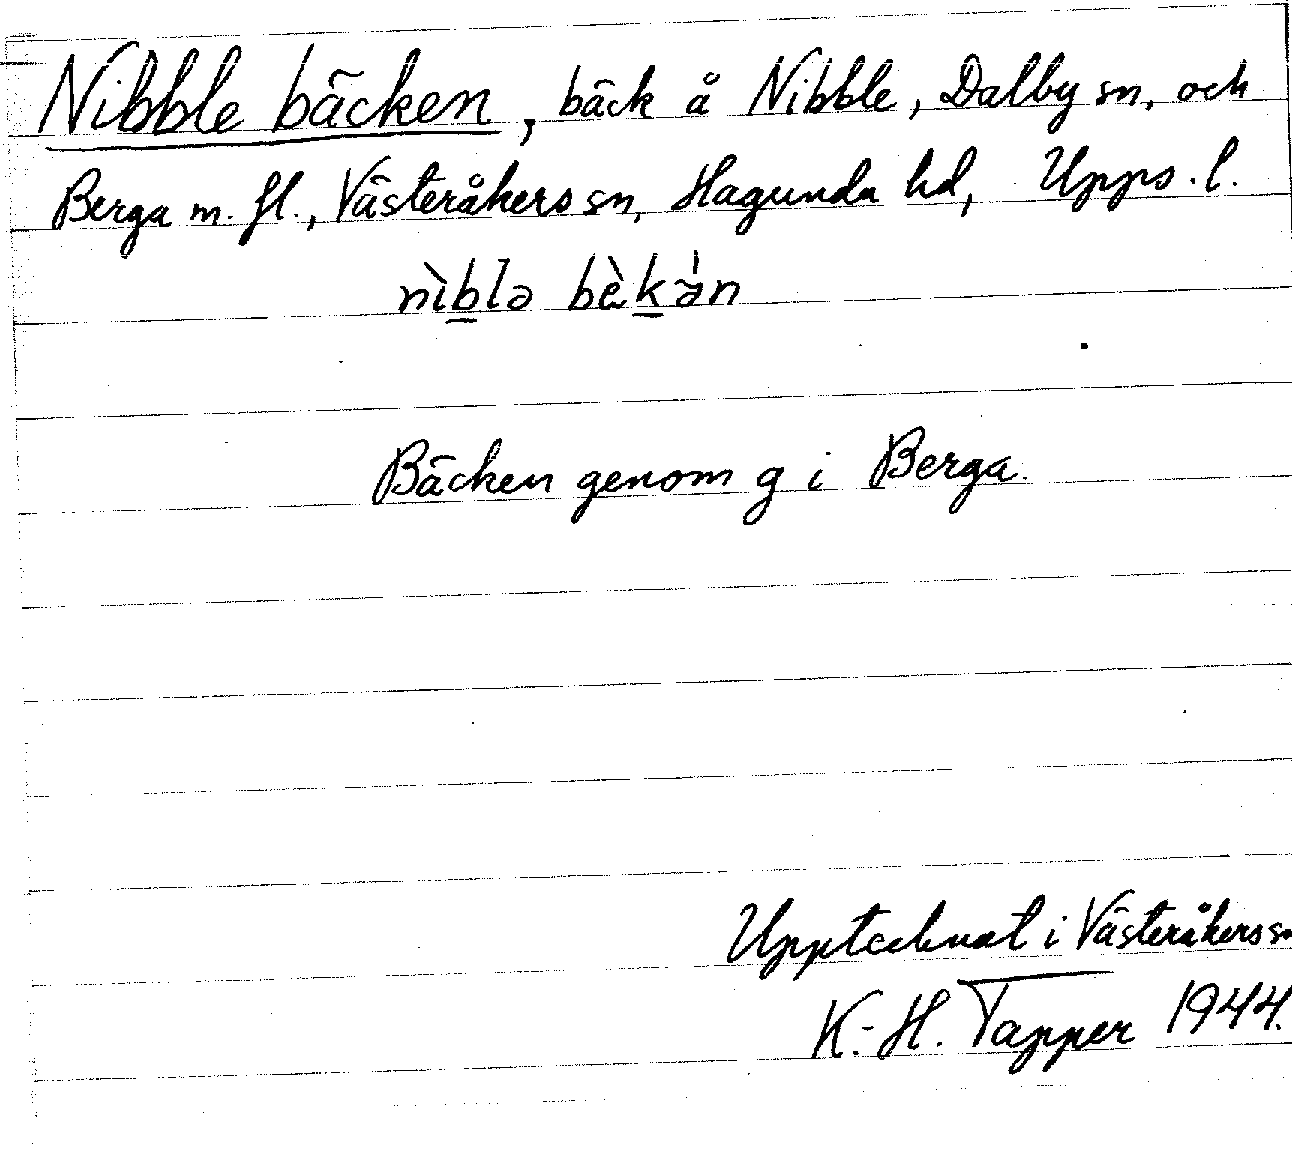 Nibble bäcken, bäck å Nibble, Dalby sn, och
Berga m. fl., Västeråkers sn, Hagunda hd, Upps. l.
nìb̲lə bèk̲ə̀n
Bäcken genom g i Berga.
Upptecknat i Västeråkers sn
K.-H. Tapper 1944.